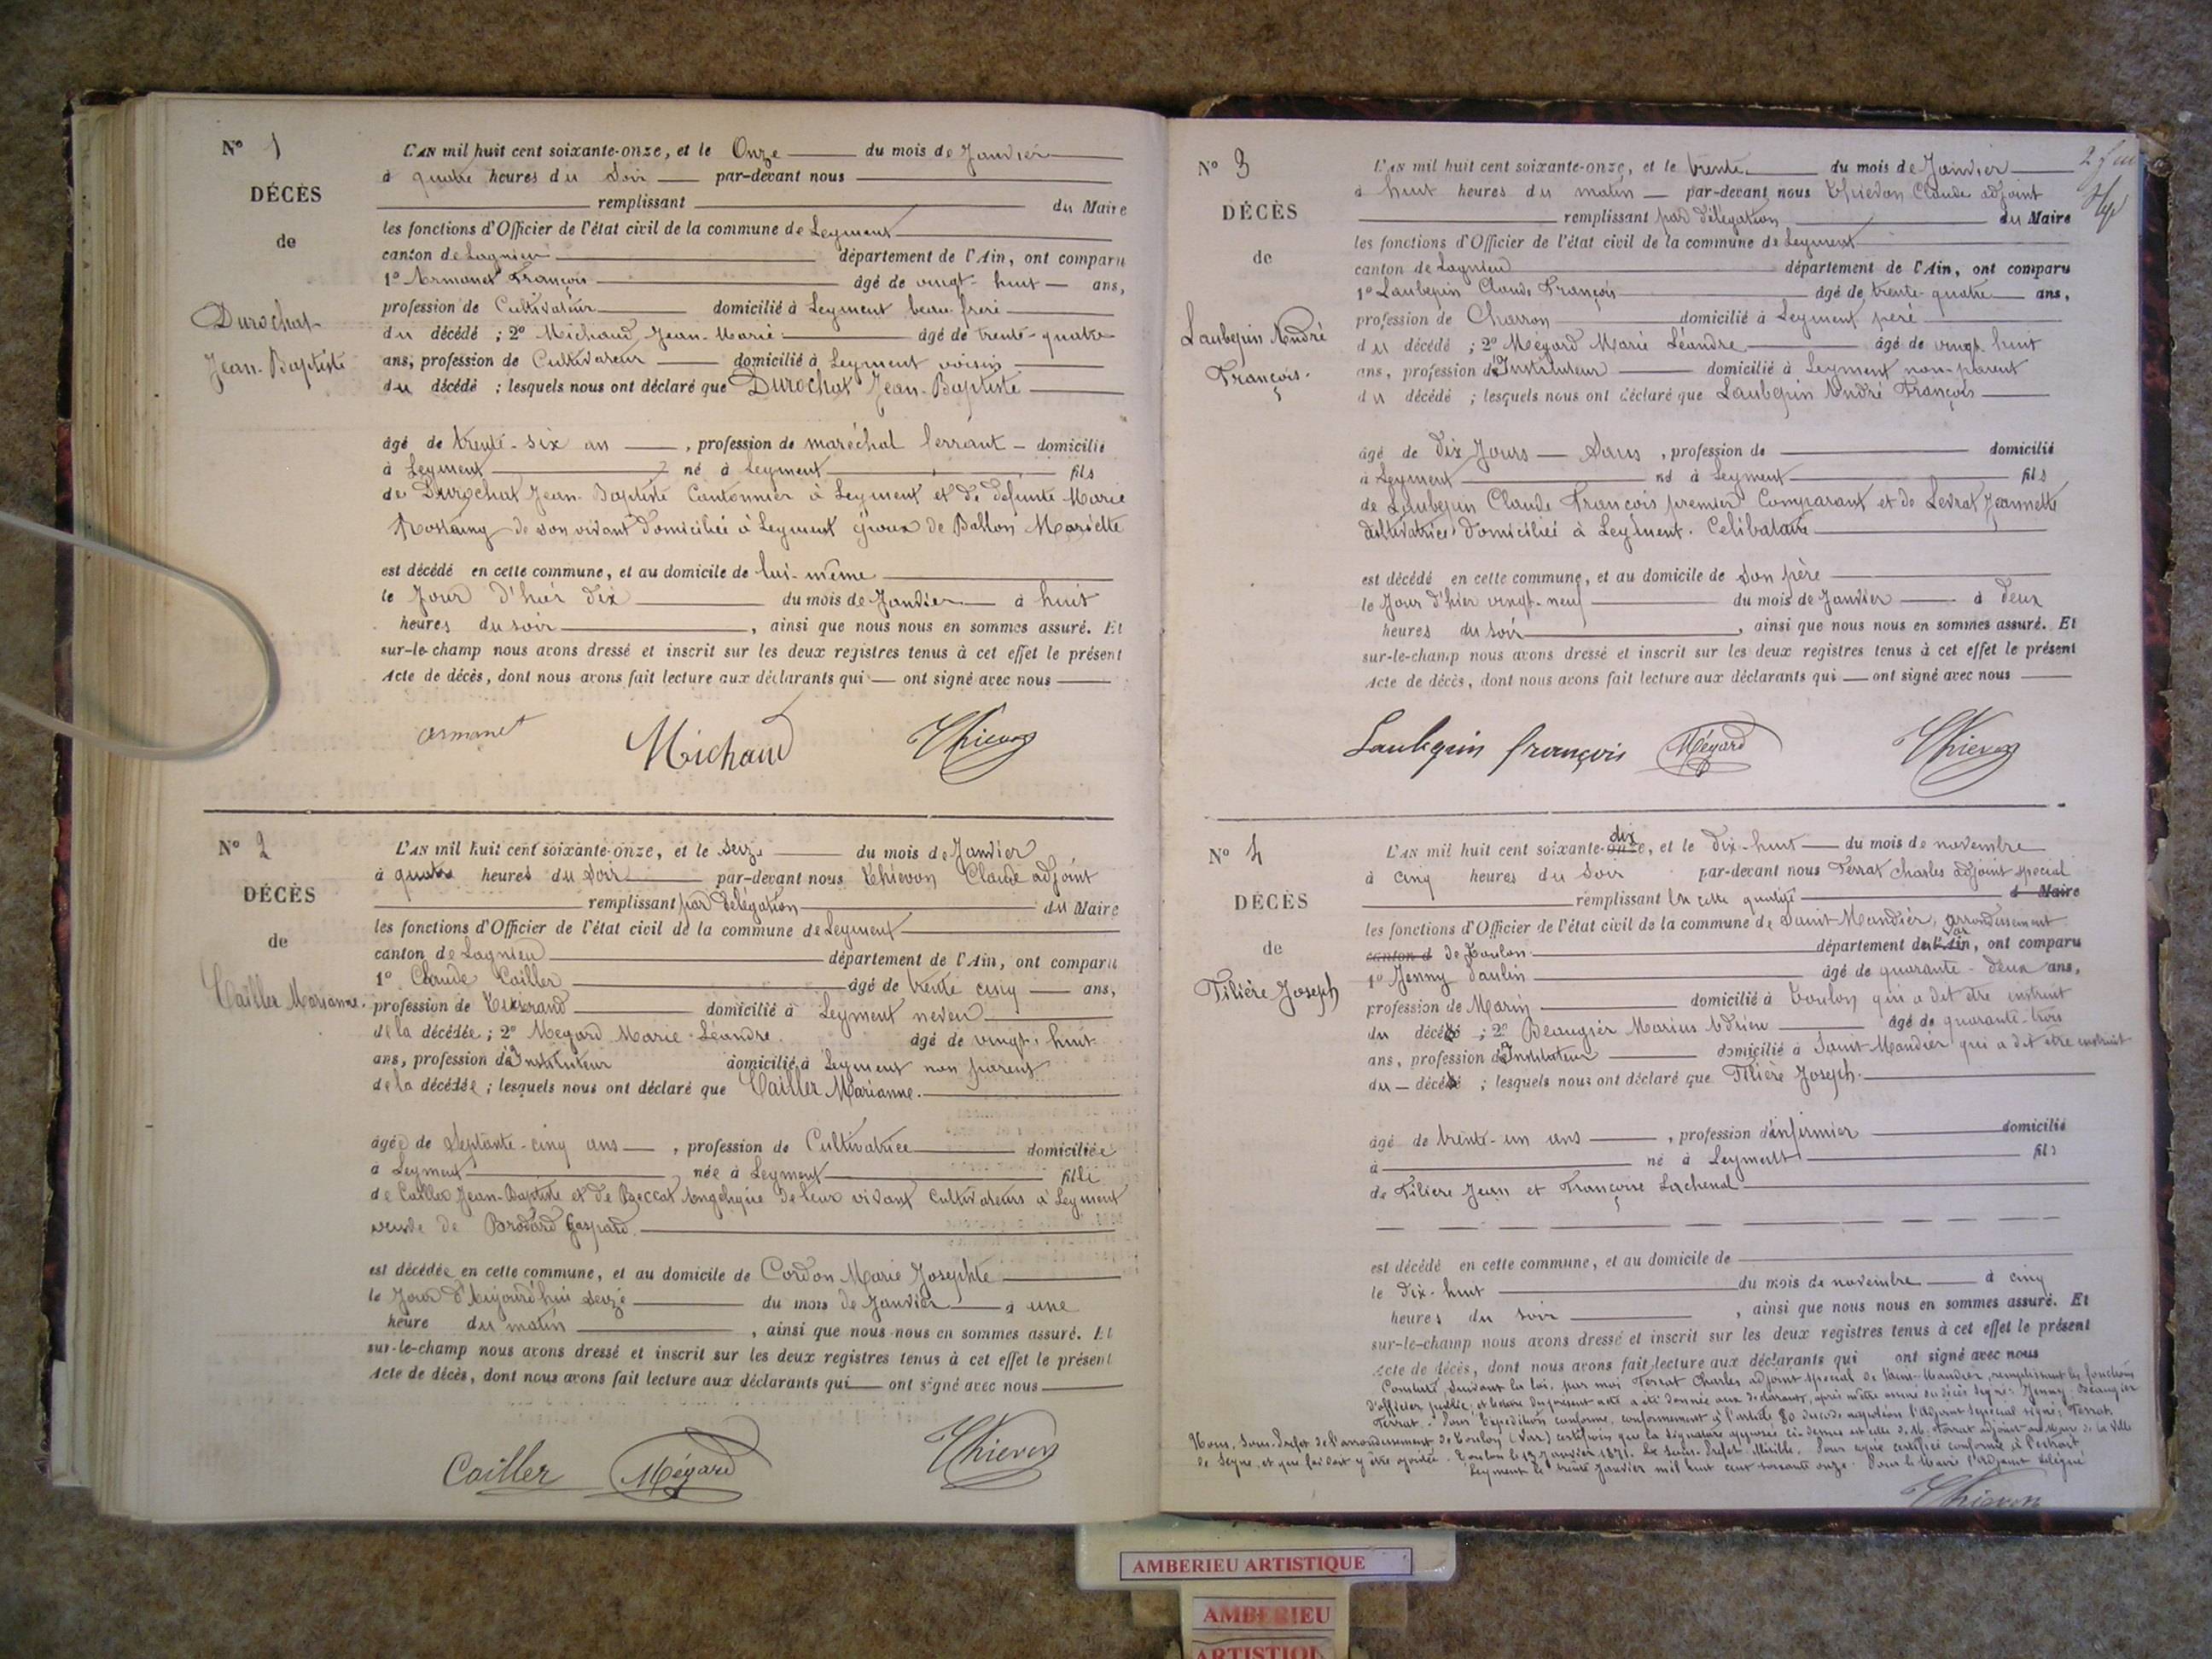 N° 1
DÉCÈS
de
Durochat
Jean-Baptiste
L'AN mil huit cent soixante-onze, et le Onze du mois de Janvier
à quatre heures du Soir par-devant nous
remplissant du Maire
les fonctions d'Officier de l'état civil de la commune de Leyment
canton de Lagnieu département de l'Ain, ont comparu
1° Armanet François âgé de vingt-huit ans,
profession de Cultivateur domicilié à Leyment beau frère
du décédé ; 2° Michaud Jean-Marie âgé de trente-quatre
ans, profession de Cultivateur domicilié à Leyment voisin
du décédé ; lesquels nous ont déclaré que Durochat Jean-Baptiste
âgé de trente-six an , profession de maréchal ferrant domicilié
à Leyment né à Leyment fils
de Durochat Jean-Baptiste Cantonnier à Leyment et de défunte Marie
Rostaing de son vivant domiciliée à Leyment époux de Ballon Mariette
est décédé en cette commune, et au domicile de lui-même
le Jour d'hier dix du mois de Janvier à huit
heures du soir , ainsi que nous nous en sommes assuré. Et
sur-le-champ nous avons dressé et inscrit sur les deux registres tenus à cet effet le présent
Acte de décès, dont nous avons fait lecture aux déclarants qui ont signé avec nous
armanet Michaud Thievon
N° 2
DÉCÈS
de
Cailler Marianne.
L'AN mil huit cent soixante-onze, et le seize du mois de Janvier
à quatre heures du soir par-devant nous Thievon Claude adjoint
remplissant par délégation du Maire
les fonctions d'Officier de l'état civil de la commune de Leyment
canton de Lagnieu département de l'Ain, ont comparu
1° Claude Cailler âgé de trente cinq ans,
profession de Tisserand domicilié à Leyment neveu
de la décédée ; 2° Mégard Marie-Léandre âgé de vingt-huit
ans, profession d'Instituteur domicilié à Leyment non parent
de la décédée ; lesquels nous ont déclaré que Cailler Marianne.
âgée de Septante-cinq ans , profession de Cultivatrice domiciliée
à Leyment née à Leyment fille
de Cailler Jean-Baptiste et de Beccat Angélique de leur vivant cultivateurs à Leyment
veuve de Brodard Gaspard.
est décédée en cette commune, et au domicile de Cordon Marie Josephte
le Jour d'Aujourd'hui seize du mois de Janvier à une
heure du matin , ainsi que nous nous en sommes assuré. Et
sur-le-champ nous avons dressé et inscrit sur les deux registres tenus à cet effet le présent
Acte de décès, dont nous avons fait lecture aux déclarants qui ont signé avec nous
Cailler Mégard Thievon
N° 3
DÉCÈS
de
Laubepin André
François.
L'AN mil huit cent soixante-onze, et le trente du mois de Janvier
à huit heures du matin par-devant nous Thievon Claude adjoint
remplissant par délégation du Maire
les fonctions d'Officier de l'état civil de la commune de Leyment
canton de Lagnieu département de l'Ain, ont comparu
1° Laubepin Claude François âgé de trente-quatre ans,
profession de Charron domicilié à Leyment père
du décédé ; 2° Mégard Marie Léandre âgé de vingt huit
ans, profession d'Instituteur domicilié à Leyment non-parent
du décédé ; lesquels nous ont déclaré que Laubepin André François
âgé de dix Jours Sans , profession de domicilié
à Leyment né à Leyment fils
de Laubepin Claude François premier Comparant et de Levrat Jeannette
cultivatrice domiciliée à Leyment. Célibataire
est décédé en cette commune, et au domicile de son père
le Jour d'hier vingt-neuf du mois de Janvier à deux
heures du soir , ainsi que nous nous en sommes assuré. Et
sur-le-champ nous avons dressé et inscrit sur les deux registres tenus à cet effet le présent
Acte de décès, dont nous avons fait lecture aux déclarants qui ont signé avec nous
Laubepin françois Mégard Thievon
N° 4
DÉCÈS
de
Filière Joseph
L'AN mil huit cent soixante-onze dix, et le dix-huit du mois de novembre
à cinq heures du soir par-devant nous Terrat Charles adjoint spécial
remplissant en cette qualité d Maire
les fonctions d'Officier de l'état civil de la commune de Saint-Mandrier, arrondissement
canton d de Toulon département du Var l'Ain, ont comparu
1° Jenny Paulin âgé de quarante-deux ans,
profession de Marin domicilié à Toulon qui a dit être instruit
du décès ; 2° Beaugier Marius Adrien âgé de quarante-trois
ans, profession d'Instituteur domicilié à Saint-Mandrier qui a dit être instruit
du décès ; lesquels nous ont déclaré que Filière Joseph.
âgé de trente-un ans , profession d'infirmier domicilié
à né à Leyment fils
de Filière Jean et Françoise Lachenal
est décédé en cette commune, et au domicile de
le dix-huit du mois de novembre à cinq
heures du soir , ainsi que nous nous en sommes assuré. Et
sur-le-champ nous avons dressé et inscrit sur les deux registres tenus à cet effet le présent
Acte de décès, dont nous avons fait lecture aux déclarants qui ont signé avec nous
Constaté, suivant la loi, par moi Terrat Charles adjoint spécial de Saint-Mandrier, remplissant les fonctions
d'officier public, et lecture du présent acte a été donnée aux déclarants, après m'être assuré du décès signé: Jenny. Beaugier
Terrat. Pour Expédition conforme, conformément à l'article 80 du code napoléon l'adjoint spécial signé: Terrat.
Nous, Sous-Préfet de l'arrondissement de Toulon (Var) certifions que la signature apposée ci-dessus est celle de M. Terrat adjoint au Maire de la Ville
de Seyne, et que foi doit y être ajoutée. Toulon le 13 Janvier 1871. Le Sous-Préfet. Pour copie certifiée conforme à l'extrait,
Leyment le trente Janvier mil huit cent soixante onze. Pour le Maire l'adjoint délégué
Thievon
AMBERIEU ARTISTIQUE
AMBERIEU
ARTISTIQ